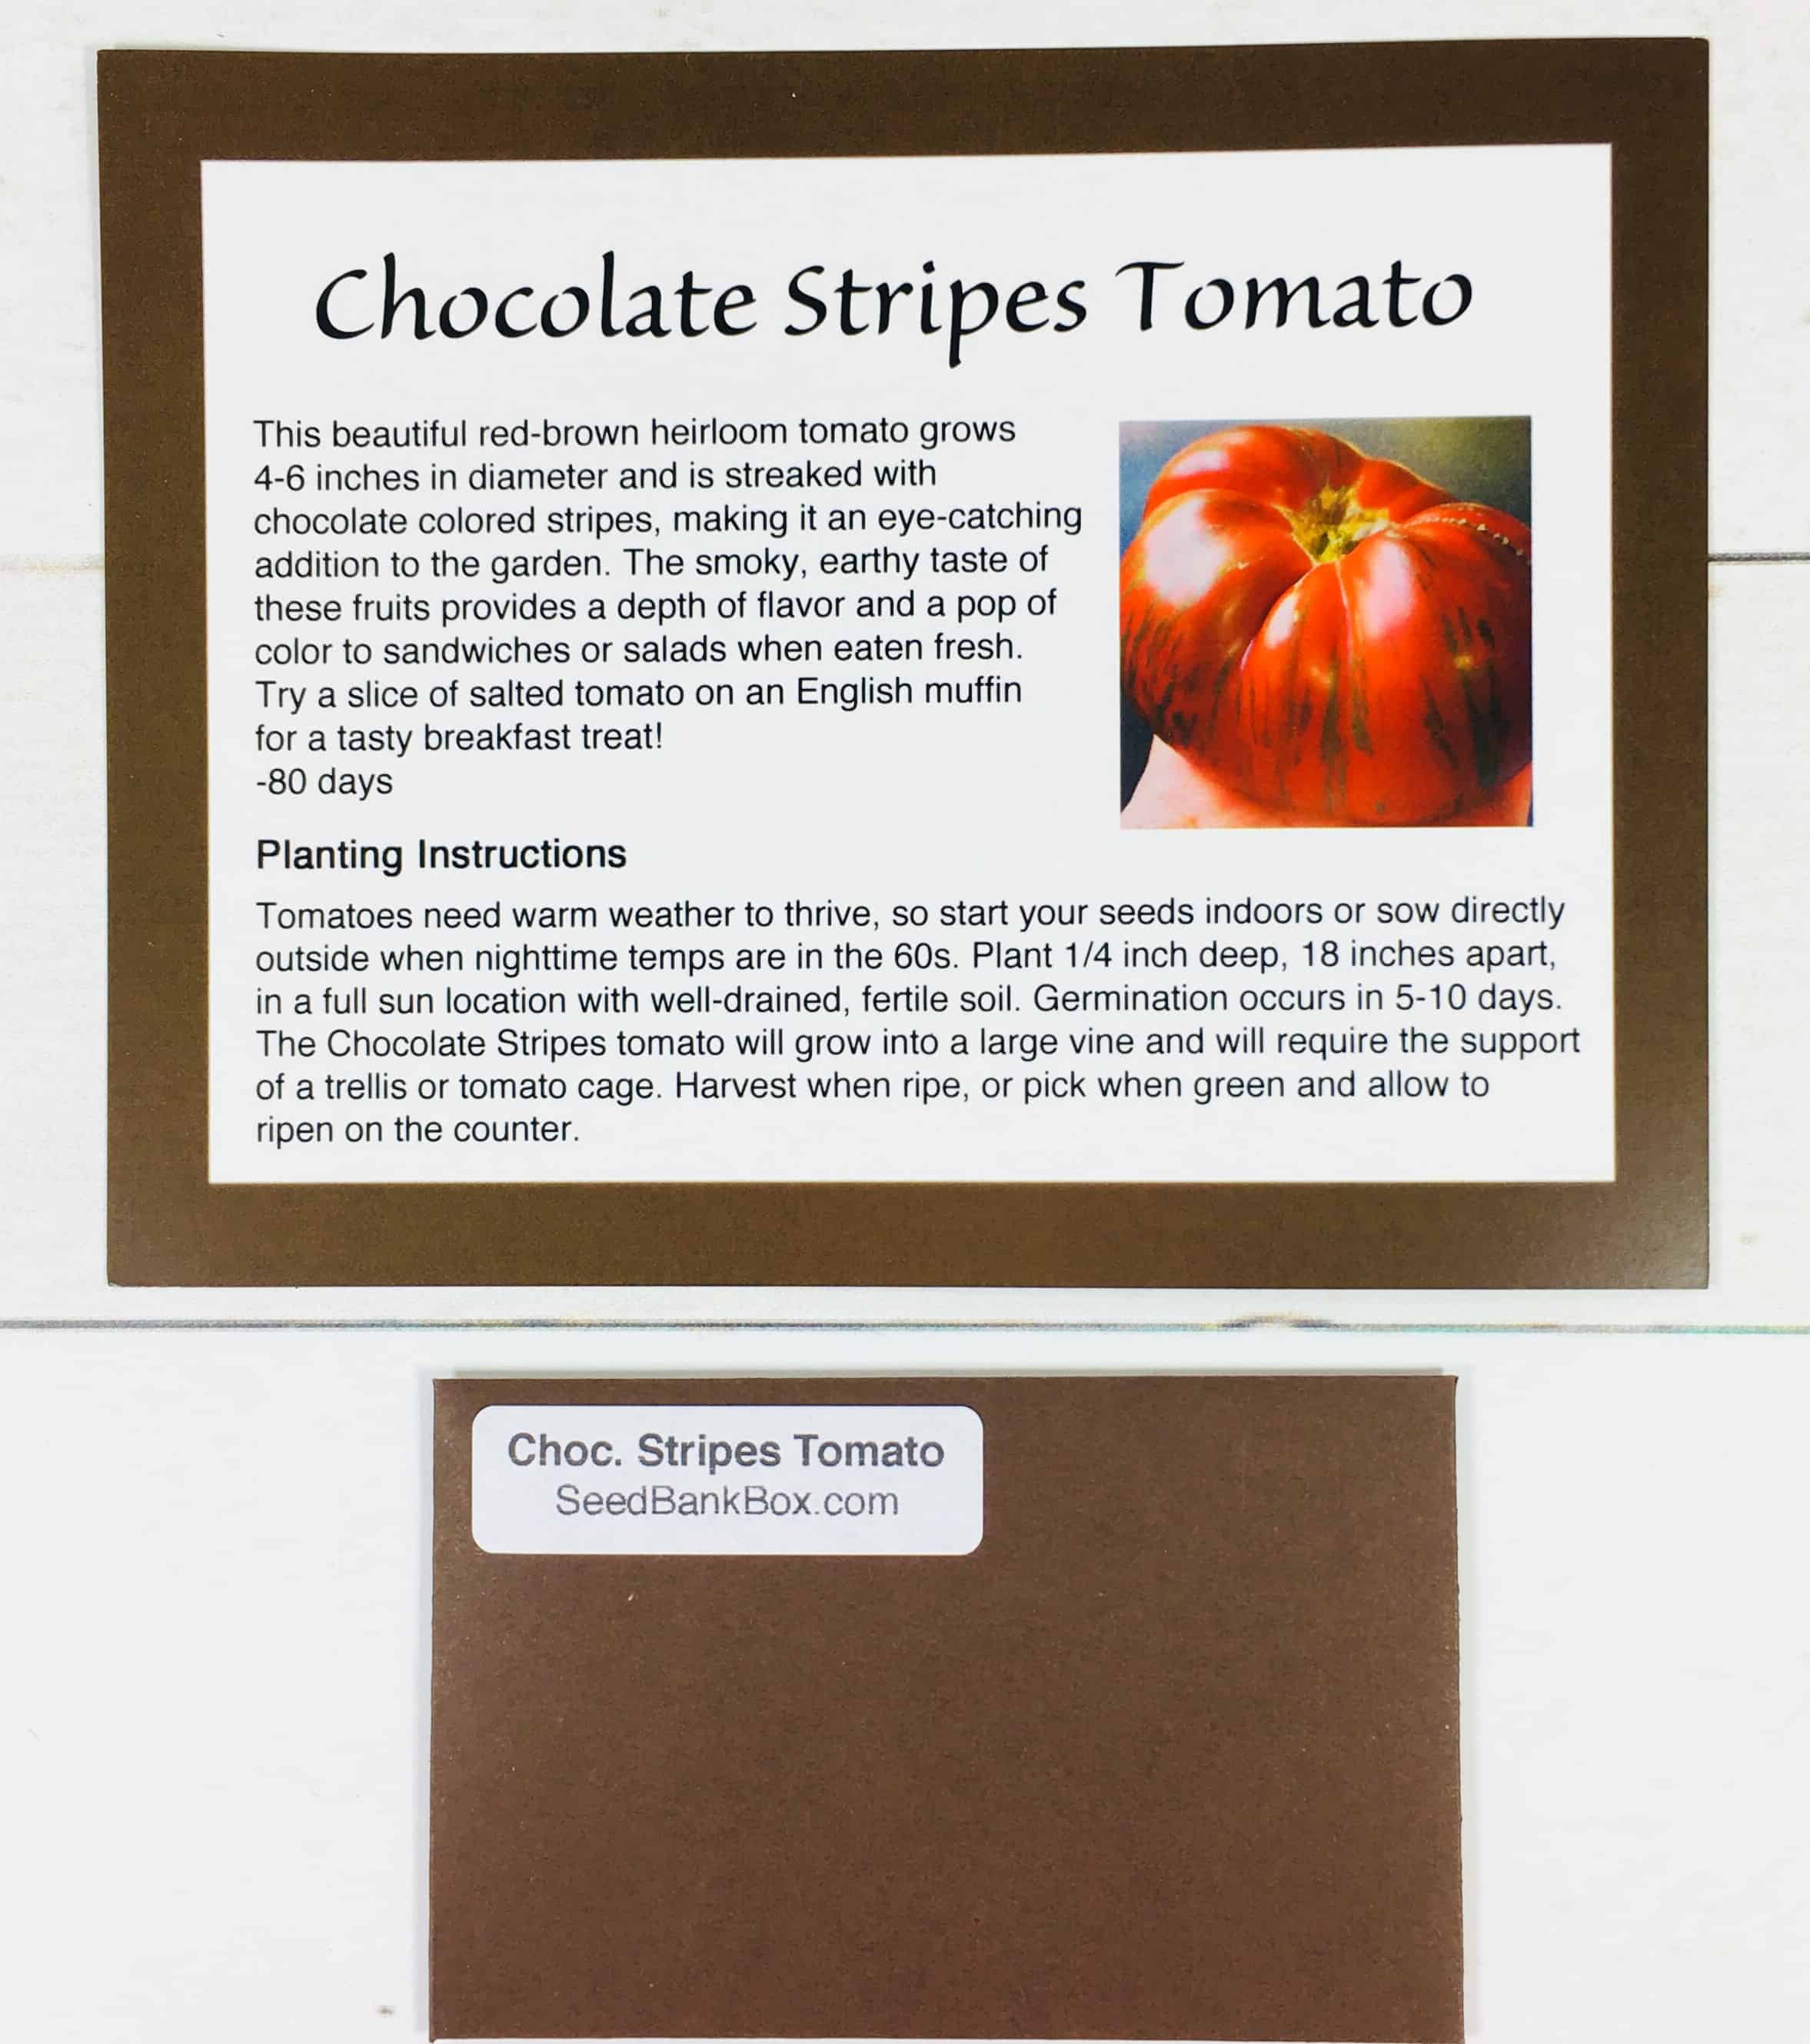 Chocolate Stripes Tomato
This beautiful red-brown heirloom tomato grows
4-6 inches in diameter and is streaked with
chocolate colored stripes, making it an eye-catching
addition to the garden. The smoky, earthy taste of
these fruits provides a depth of flavor and a pop of
color to sandwiches or salads when eaten fresh.
Try a slice of salted tomato on an English muffin
for a tasty breakfast treat!
-80 days
Planting Instructions
Tomatoes need warm weather to thrive, so start your seeds indoors or sow directly
outside when nighttime temps are in the 60s. Plant 1/4 inch deep, 18 inches apart,
in a full sun location with well-drained, fertile soil. Germination occurs in 5-10 days.
The Chocolate Stripes tomato will grow into a large vine and will require the support
of a trellis or tomato cage. Harvest when ripe, or pick when green and allow to
ripen on the counter.
Choc. Stripes Tomato
SeedBankBox.com